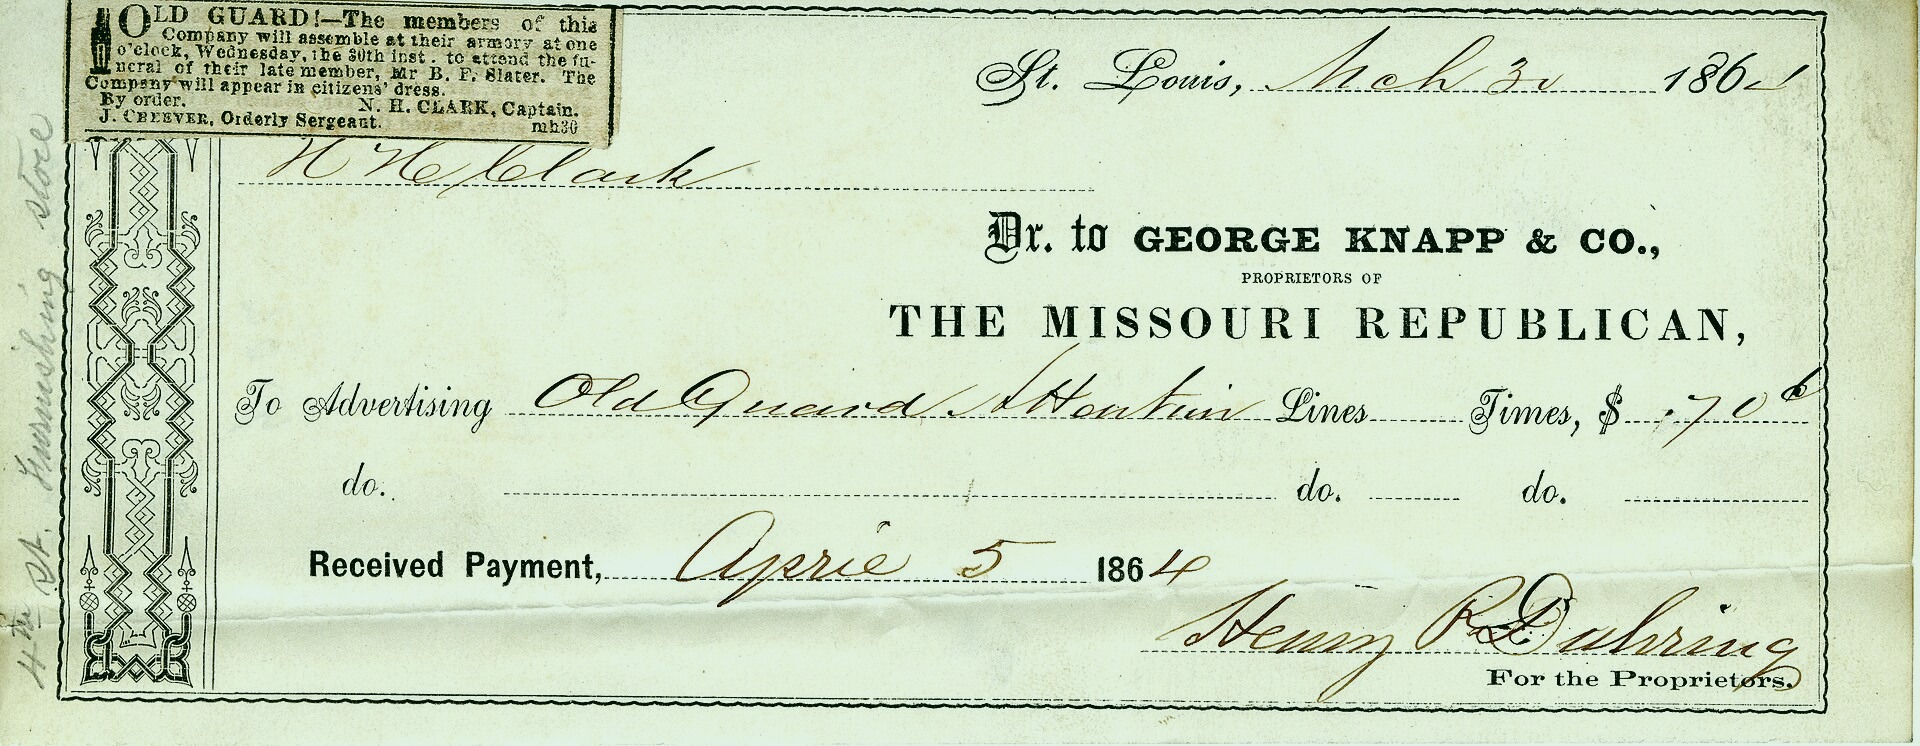 OLD GUARD!—The members of this
Company will assemble at their armory at one
o'clock, Wednesday, the 30th inst. to attend the fu-
neral of their late member, Mr B. F. Slater. The
Company will appear in citizens' dress.
By order. N. H. CLARK, Captain.
J. CHEEVER, Orderly Sergeant. mh30
St. Louis, Mch 30 1864
N H Clark
Dr. to GEORGE KNAPP & CO.,
PROPRIETORS OF
THE MISSOURI REPUBLICAN,
To Advertising Old Guard Attention Lines Times, $ .70c
do. do. do.
Received Payment, April 5 1864
Henry R Duhring
For the Proprietors.
4th St. Furnishing store